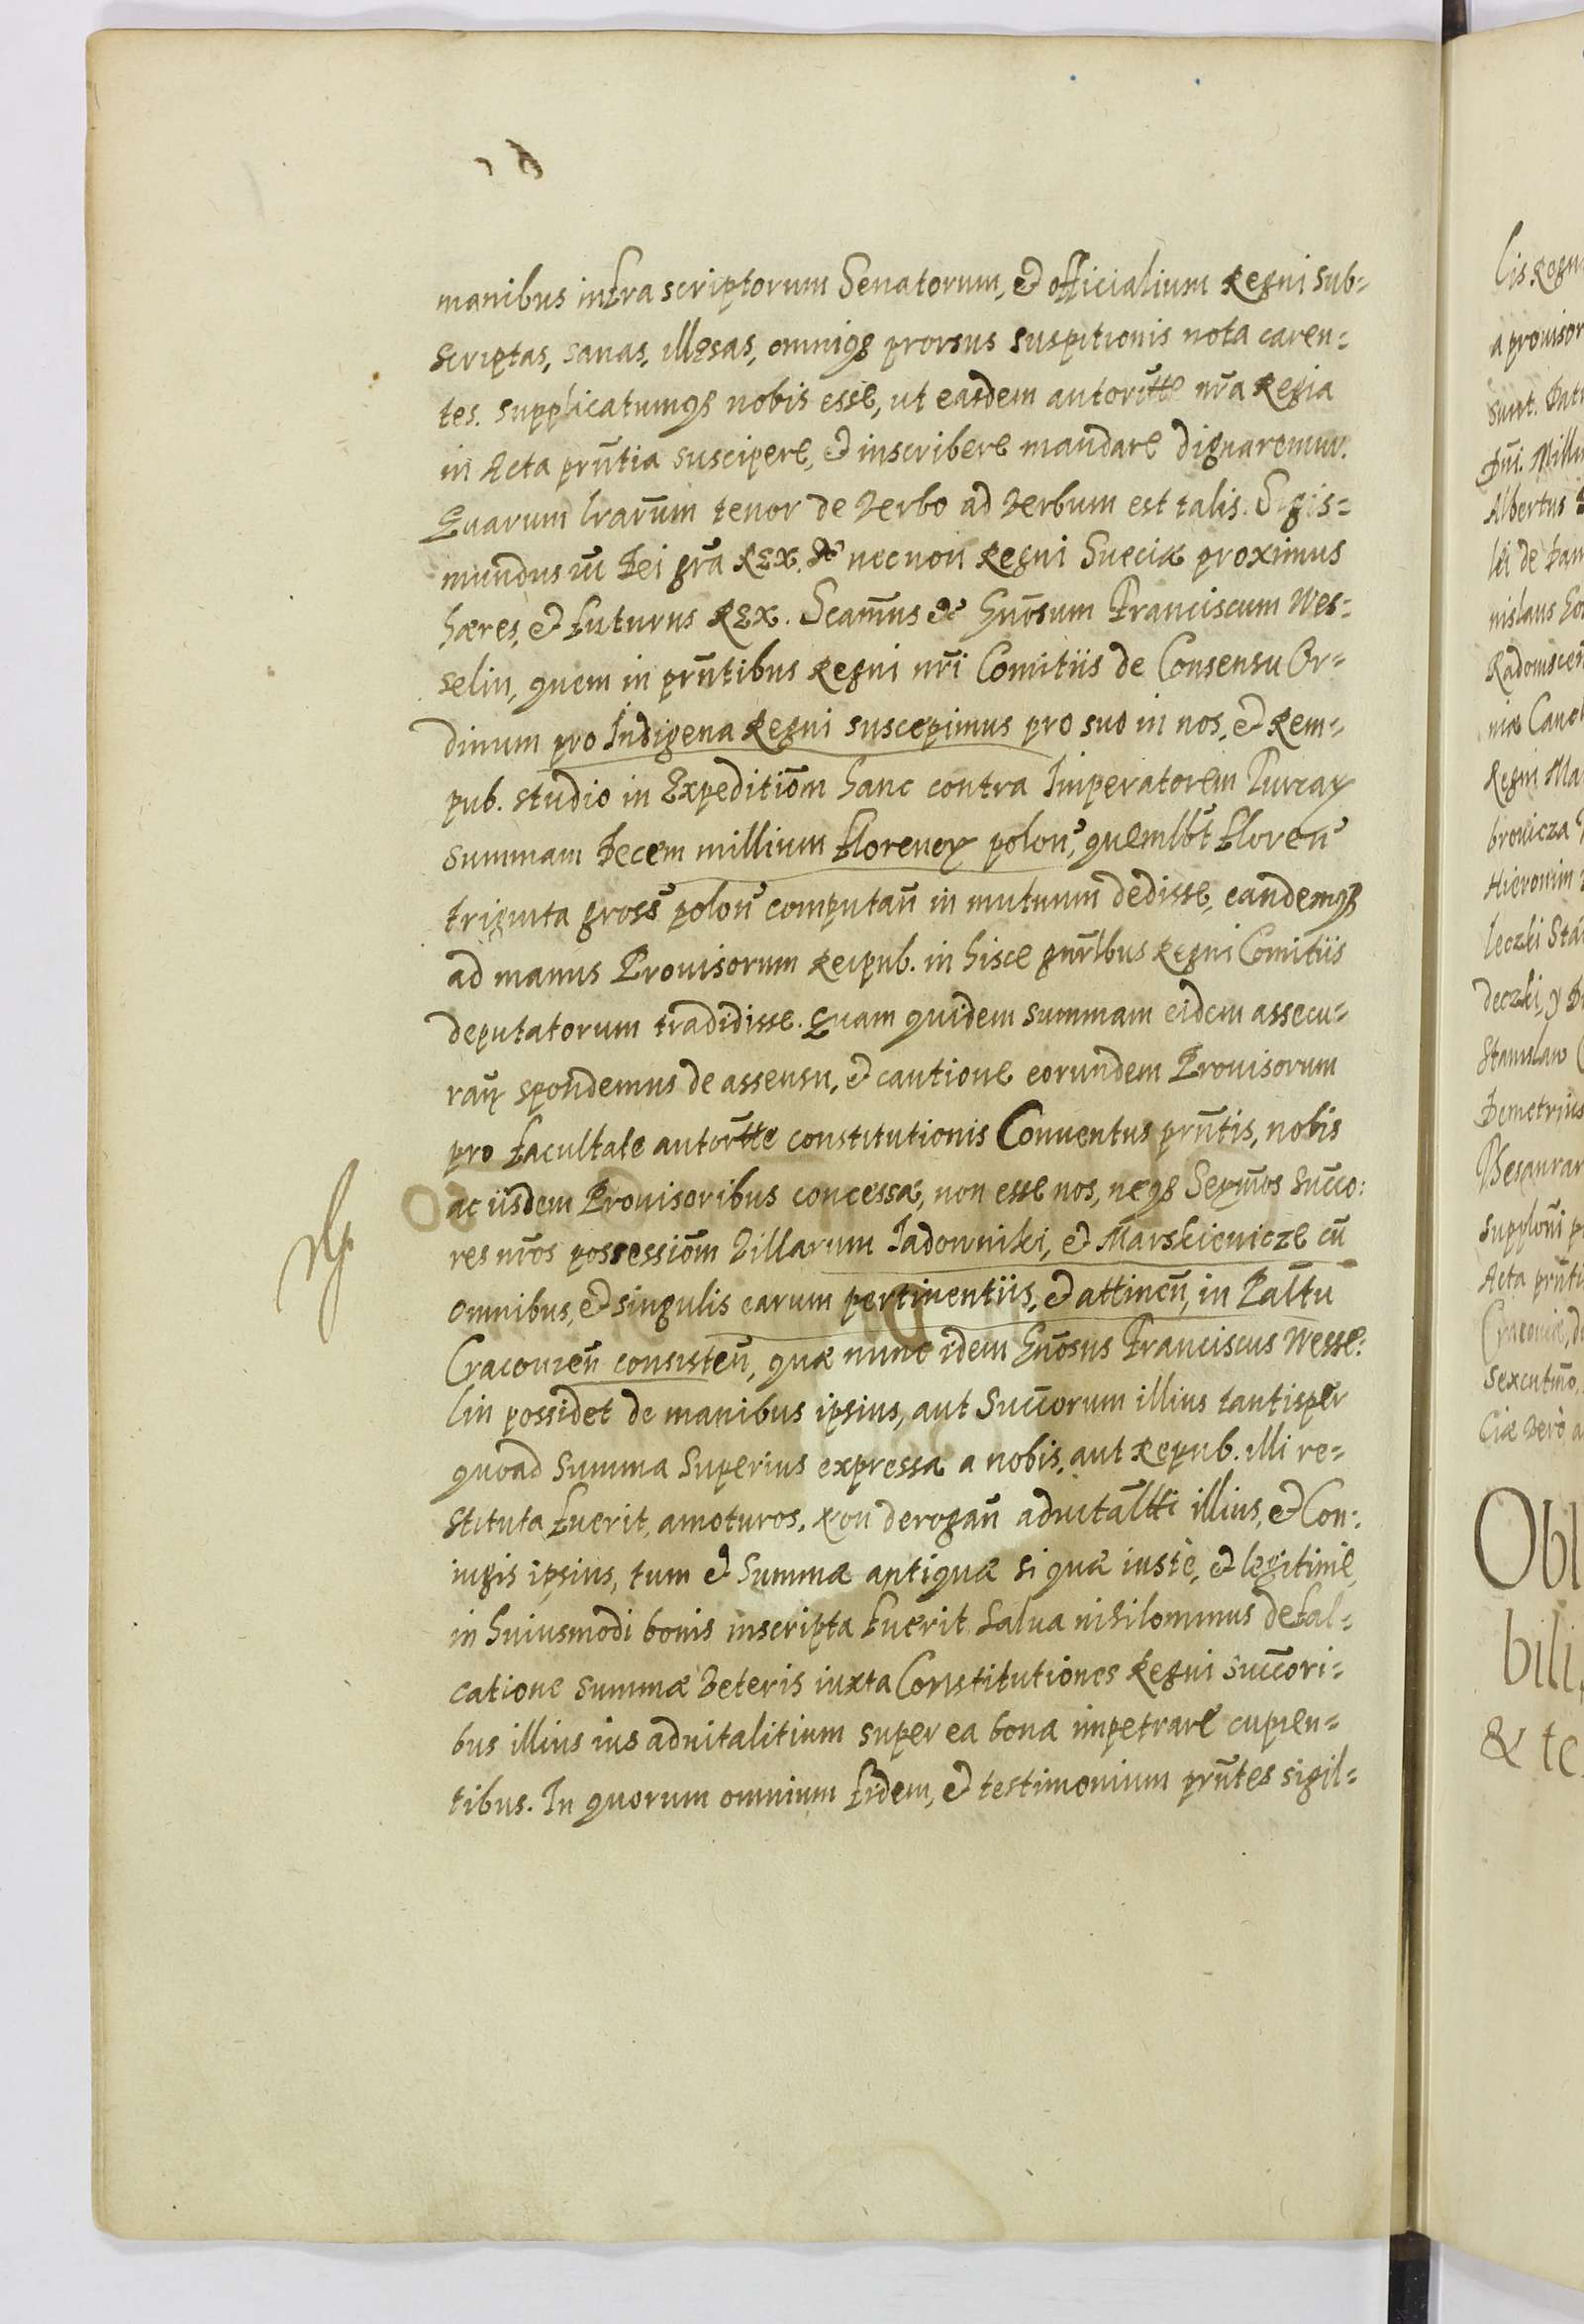 manibus infra scriptorum Senatorum, & officialium Regni sub=
scriptas, sanas, illęsas, omniq3 prorsus suspitionis nota caren=
tes. supplicatumq3 nobis esse, ut easdem autorit̃te nr̃a Regia
in Acta prñtia suscipere, & inscribere mandare dignaremur.
Quarum lrarũm tenor de verbo ad verbum est talis. Sigis=
mundus IIĩ Dei grã REX. &c necnon Regni Sueciæ proximus
hæres, & futurus REX. Scam̃us &c Gnõsum Franciscum Wes=
selin, quem in prñtibus Regni nrĩ Comitiis de Consensu Or=
dinum pro Indigena Regni suscepimus pro suo in nos, & Rem=
pub. studio in Expeditiõm hanc contra Imperatorem Turcaꝝ
summam Decem millium florenoꝝ polon̄, quemlbt̃ floren̄
triginta gross̄ polon̄ computañ in mutuum dedisse, eandemq3
ad manus Prouisorum Reipub. in hisce gnr̃lbus Regni Comitiis
deputatorum tradidisse. Quam quidem summam eidem assecu=
raꝝ spondemus de assensu, & cautione eorundem Prouisorum
pro facultate autor̃tte constitutionis Conuentus prñtis, nobis
ac iisdem Prouisoribus concessæ, non esse nos, neq3 Serm̃os succo:
res nrõs possessiõm villarum Jadowniki, & Marskieuicze cũ
omnibus, & singulis earum pertinentiis, & attineñ, in Pal̃tu
Cracouieñ consisteñ, quæ nunc idem Gnõsus Franciscus Wesse:
lin possidet de manibus ipsius, aut Succorum illius tantisper
quoad Summa Superius expressa a nobis, aut Repub. illi re=
stituta fuerit, amoturos. Non derogañ aduital̃tti illius, & Con:
iugis ipsius, tum & Summæ antiquæ si quæ iustè, & legitimè,
in huiusmodi bonis inscripta fuerit salua nihilominus defal=
catione summæ veteris iuxta Constitutiones Regni succori=
bus illius ius aduitalitium super ea bona impetrare cupien=
tibus. In quorum omnium fidem, & testimonium prñtes sigil=
lis Regn
a prouisor
sunt. Dat
Albertus
nislaus
Regni Ma
Hieronim
leczki Sta
deczki, y
Stanislaw
Demetrius
Thesaurar
Acta prñti
Cracouiæ, d
Obl
bili
& te